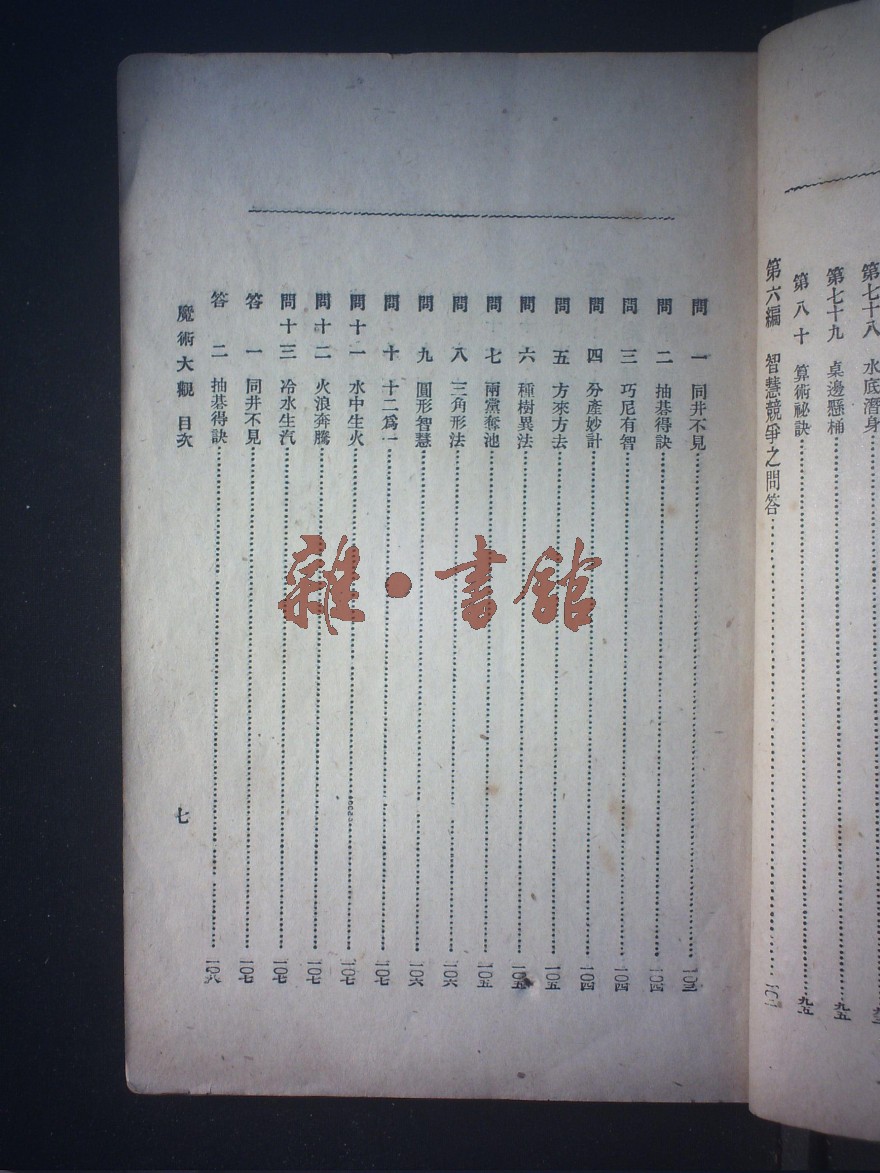 第七十八 水底潛身
第七十九 桌邊懸桶……九五
第八十 算術祕訣……九五
第六編 智慧競爭之問答……
問一 同井不見……一〇三
問二 抽碁得訣……一〇四
問三 巧尼有智……一〇四
問四 分產妙計……一〇四
問五 方來方去……一〇五
問六 種樹異法……一〇五
問七 兩黨奪池……一〇五
問八 三角形法……一〇六
問九 圓形智慧……一〇六
問十 十二爲一……一〇七
問十一 水中生火……一〇七
問十二 火浪奔騰……一〇七
問十三 冷水生汽……一〇七
答一 同井不見……一〇七
答二 抽碁得訣……一〇八
魔術大觀 目次 七
雜·書館